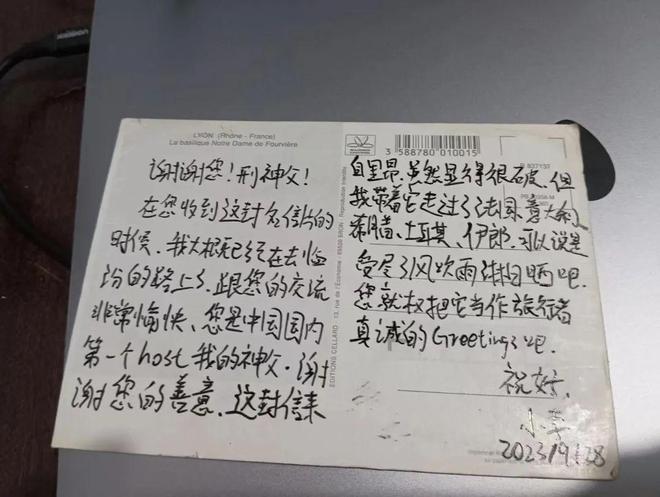 LYON (Rhône - France)
La basilique Notre Dame de Fourvière
谢谢您！刑神父！
在您收到这封名信片的
时候，我大概已经在去临
汾的路上了，跟您的交流
非常愉快、您是中国国内
第一个host我的神父。谢
谢您的善意、这封信来
EDITIONS CELLARD - 13, rue de l'Économie - 69500 BRON - Reproduction interdite
3 588780 010015
自里昂，虽然显得很破、但
我带着它走过了法国、意大利、
希腊、土耳其、伊郎，可以说是
受尽了风吹雨淋日晒吧。
您就权把它当作旅行者
真诚的Greetings吧。
祝好，
2023/9/28